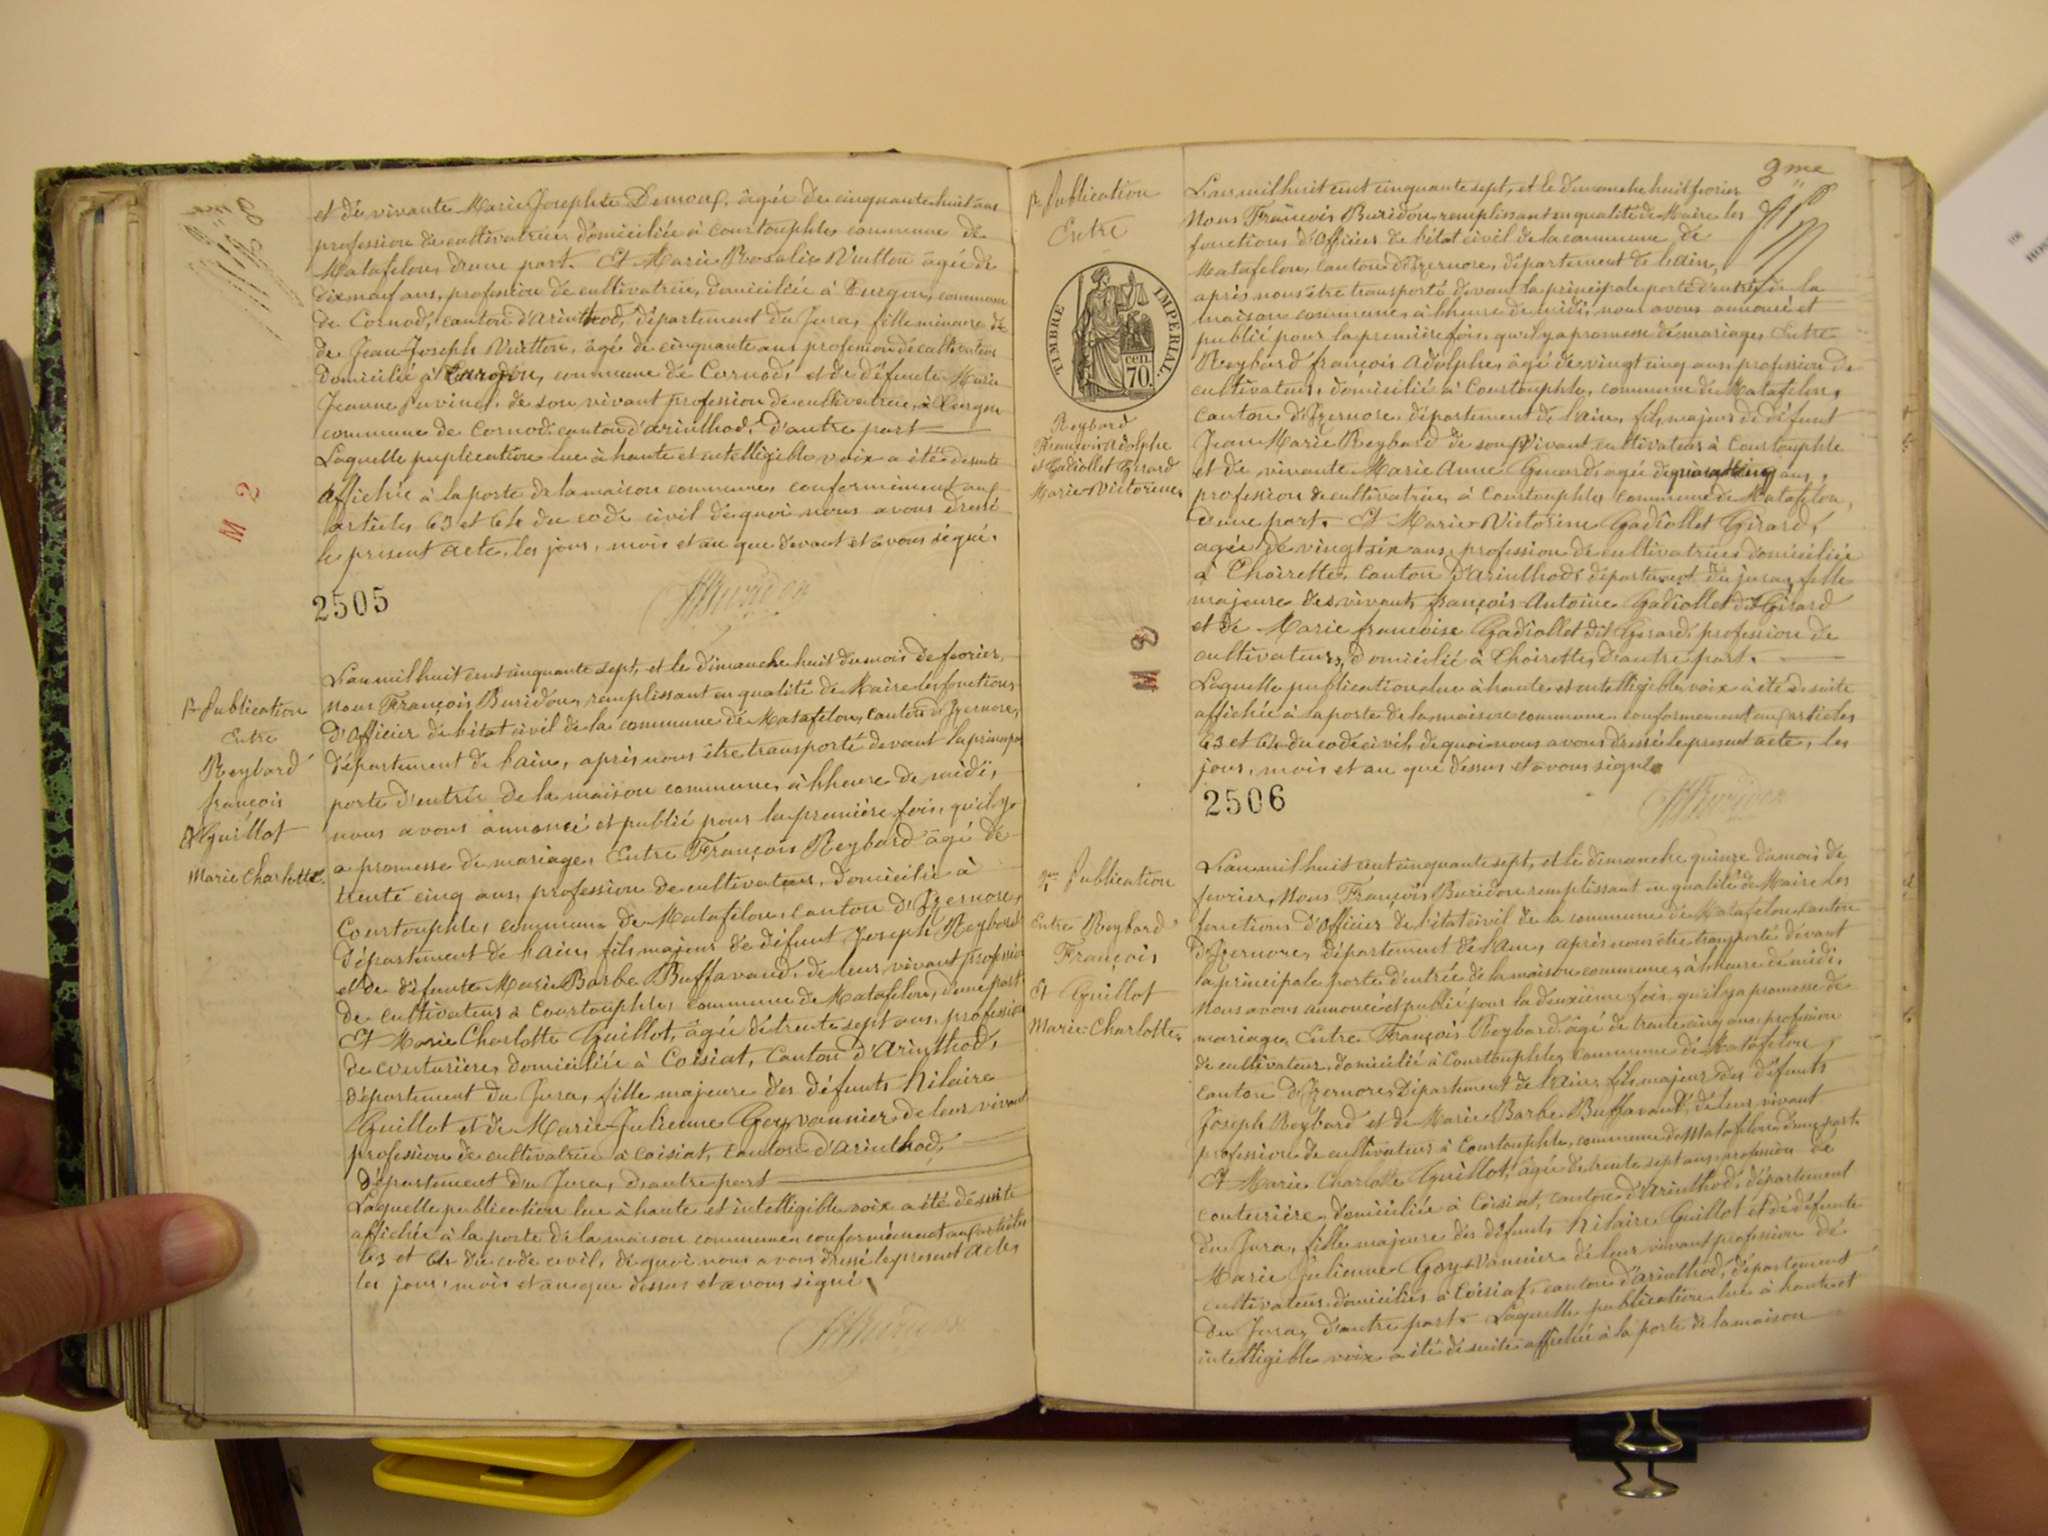 et de vivante Marie Josephte Demouf. âgée de cinquante huit ans
profession de cultivatrice domiciliée à Courtouphle commune de
Matafelon, d'une part. Et Marie Rosalie Vuitton âgée de
dix neuf ans, profession de cultivatrice, domiciliée à commune
de Cornod, canton d'arinthod, département du Jura, fille mineure de
de Jean Joseph Vuitton, âgé de cinquante ans profession de cultivateur
domicilié à commune de Cornod, et de défunte Marie
Jeanne de son vivant profession de cultivatrice, à
commune de Cornod canton d'arinthod, d'autre part
Laquelle puplication lue à haute et intelligible voix a été de suite
affichée à la porte de la maison commune, conformément aux
articles 63 et 64 du code civil de quoi nous avons dressé
le présent acte, les jour, mois et an que devant et avons signé.
M 2
2505
FBuridon
1re Publication
Entre
Reybard
françois
Et Guillot
Marie Charlotte.
L'an mil huit cent cinquante sept, et le dimanche huit du mois de fevrier,
nous François Buridon, remplissant en qualité de Maire les fonctions
d'officier de l'état civil de la commune de Matafelon, canton d'Izernore,
département de l'ain, après nous être transporté devant la principale
porte d'entrée de la maison commune, à l'heure de midi,
nous avons annoncé et publié pour la première fois, qu'il y
a promesse de mariage, Entre François Reybard âgé de
trente cinq ans, profession de cultivateur, domicilié à
Courtouphle, commune de Matafelon, canton d'Izernore,
département de l'ain, fils majeur de défunt Joseph Reybard
et de défunte Marie Barbe Buffavand, de leur vivant profession
de cultivateurs à Courtouphle, commune de Matafelon, d'une part.
Et Marie Charlotte Guillot, âgée de trente sept ans, profession
de couturière, domiciliée à Coisiat, canton d'Arinthod,
département du Jura, fille majeure des défunts hilaire
Guillot et de Marie Julienne Goyvannier de leur vivant
profession de cultivatrice à coisiat, canton d'arinthod,
département du Jura, d'autre part
Laquelle publication lue à haute et intelligible voix a été de suite
affichée à la porte de la maison commune conformément aux articles
63 et 64 du code civil, de quoi nous avons dressé le présent acte,
les jour, mois et an que dessus et avons signé.
FBuridon
9me
1re Publication
Entre
TIMBRE IMPERIAL.
cen. 70.
Reybard
François Adolphe
et Gadiollet Girard
Marie Victorine.
L'an mil huit cent cinquante sept, et le dimanche huit fevrier
Nous François Buridon remplissant en qualité de Maire les
fonctions d'officier de l'état civil de la commune de
Matafelon, canton d'Izernore, département de l'ain,
après nous être transporté devant la principale porte d'entrée de la
maison commune, à l'heure de midi, nous avons annoncé et
publié pour la première fois, qu'il y a promesse de mariage, Entre
Reybard françois Adolphe, âgé de vingt cinq ans, profession de
cultivateur, domicilié à Courtouphle, commune de Matafelon,
canton d'Izernore, département de l'ain, fils majeur de défunt
Jean Marie Reybard de son vivant cultivateur à Courtouphle
et de vivante Marie Anne agée de ans,
profession de cultivatrice, à Courtouphle, commune de Matafelon,
d'une part. Et Marie Victorine Gadiollet Girard,
agée de vingt six ans, profession de cultivatrice domiciliée
à Thoirette, canton d'Arinthod, département du jura, fille
majeure des vivants françois Antoine Gadiollet dit Girard
et de Marie françoise Gadiollet dit Girard, profession de
cultivateurs, domicilié à Thoirette, d'autre part.
Laquelle publication lue à haute et intelligible voix a été de suite
affichée à la porte de la maison commune, conformément aux articles
63 et 64 du code civil, de quoi nous avons dressé le present acte, les
jour, mois et an que dessus et avons signé.
M 3
2506
FBuridon
2me Publication
Entre Reybard
François
Et Guillot
Marie-Charlotte.
L'an mil huit cent cinquante sept, et le dimanche quinze du mois de
fevrier, Nous François Buridon remplissant en qualité de Maire les
fonctions d'officier de l'état civil de la commune de Matafelon, canton
d'Izernore, département de l'ain, après nous être transporté devant
la principale porte d'entrée de la maison commune, à l'heure de midi,
Nous avons annoncé et publié pour la deuxième fois, qu'il y a promesse de
mariage, Entre François Reybard âgé de trente cinq ans, profession
de cultivateur, domicilié à Courtouphle, commune de Matafelon,
canton d'Izernore, Département de l'ain, fils majeur des défunts
Joseph Reybard et de Marie Barbe Buffavand, de leur vivant
profession de cultivateurs à Courtouphle, commune de Matafelon, d'une part.
Et Marie Charlotte Guillot, âgée de trente sept ans, profession de
couturière, domiciliée à Coisiat, canton d'Arinthod, département
du Jura, fille majeure des défunts hilaire Guillot et de défunte
Marie Julienne Goyvannier de leur vivant profession de
cultivateurs domiciliés à Coisiat, canton d'arinthod, département
du Jura, d'autre part. Laquelle publication lue à haute et
intelligible voix a été de suite affichée à la porte de la maison